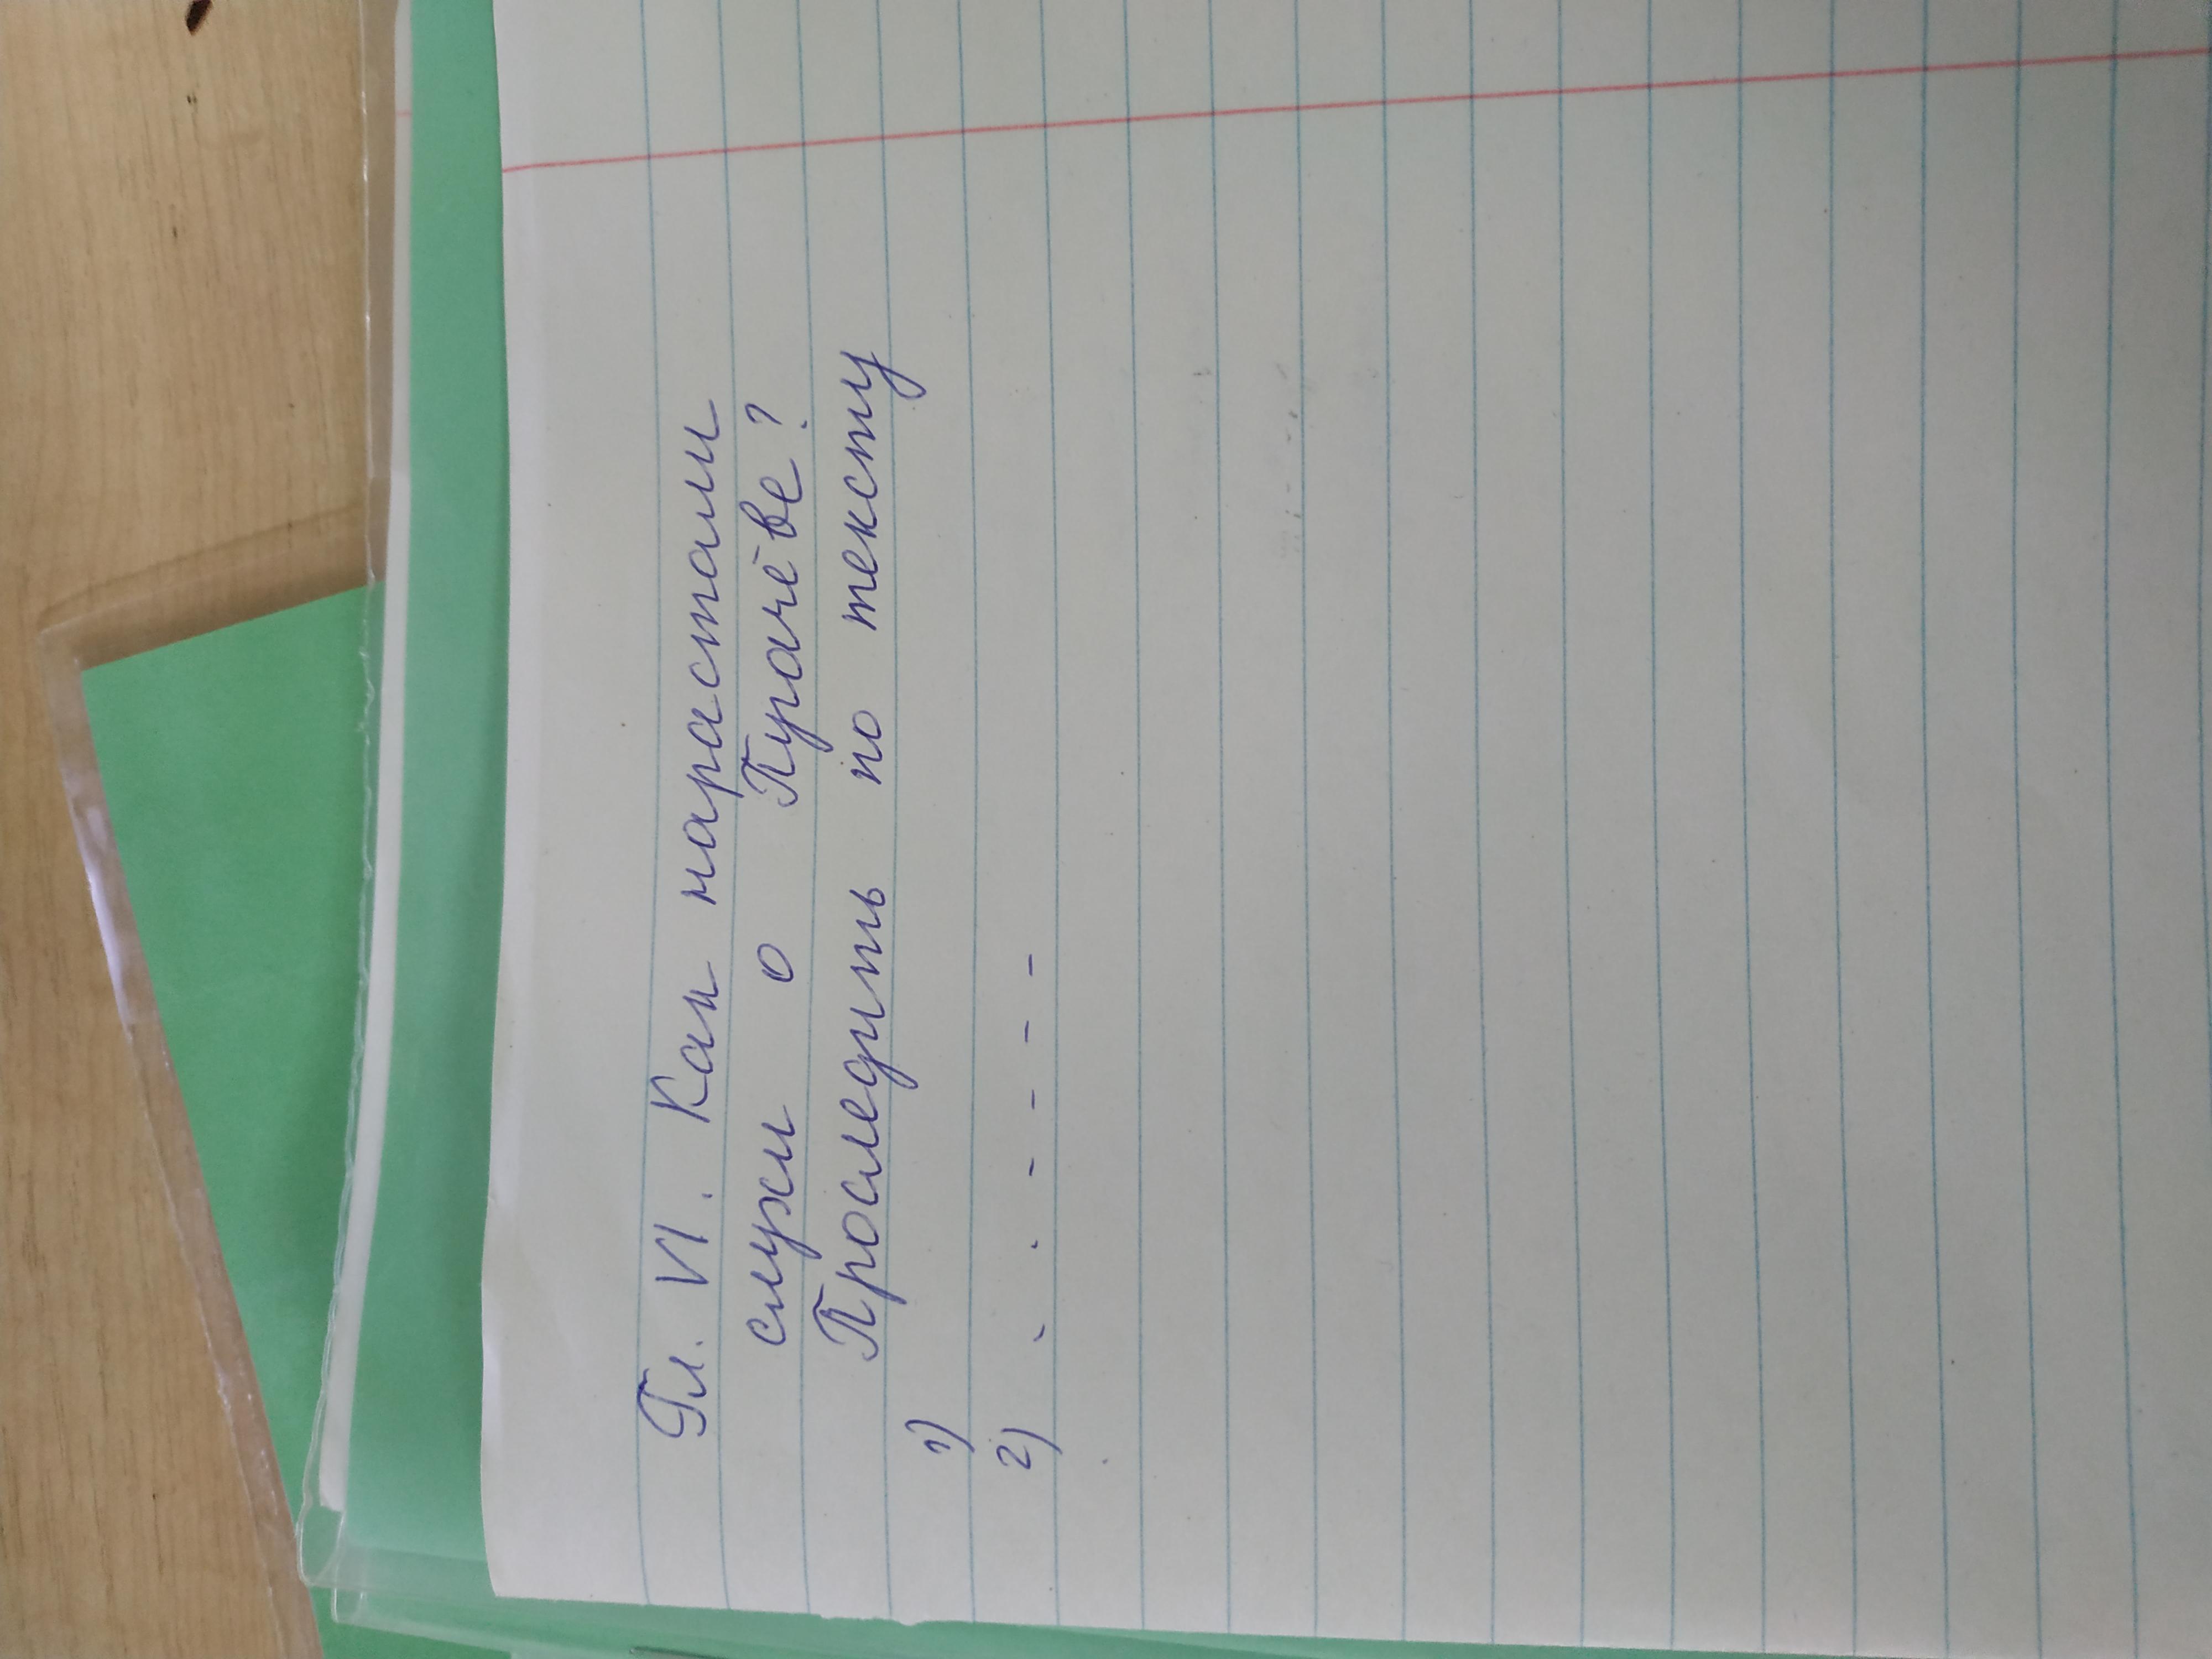 Гл. VI. Как нарастали
слухи о Пугачёве?
Проследить по тексту
1)
2)